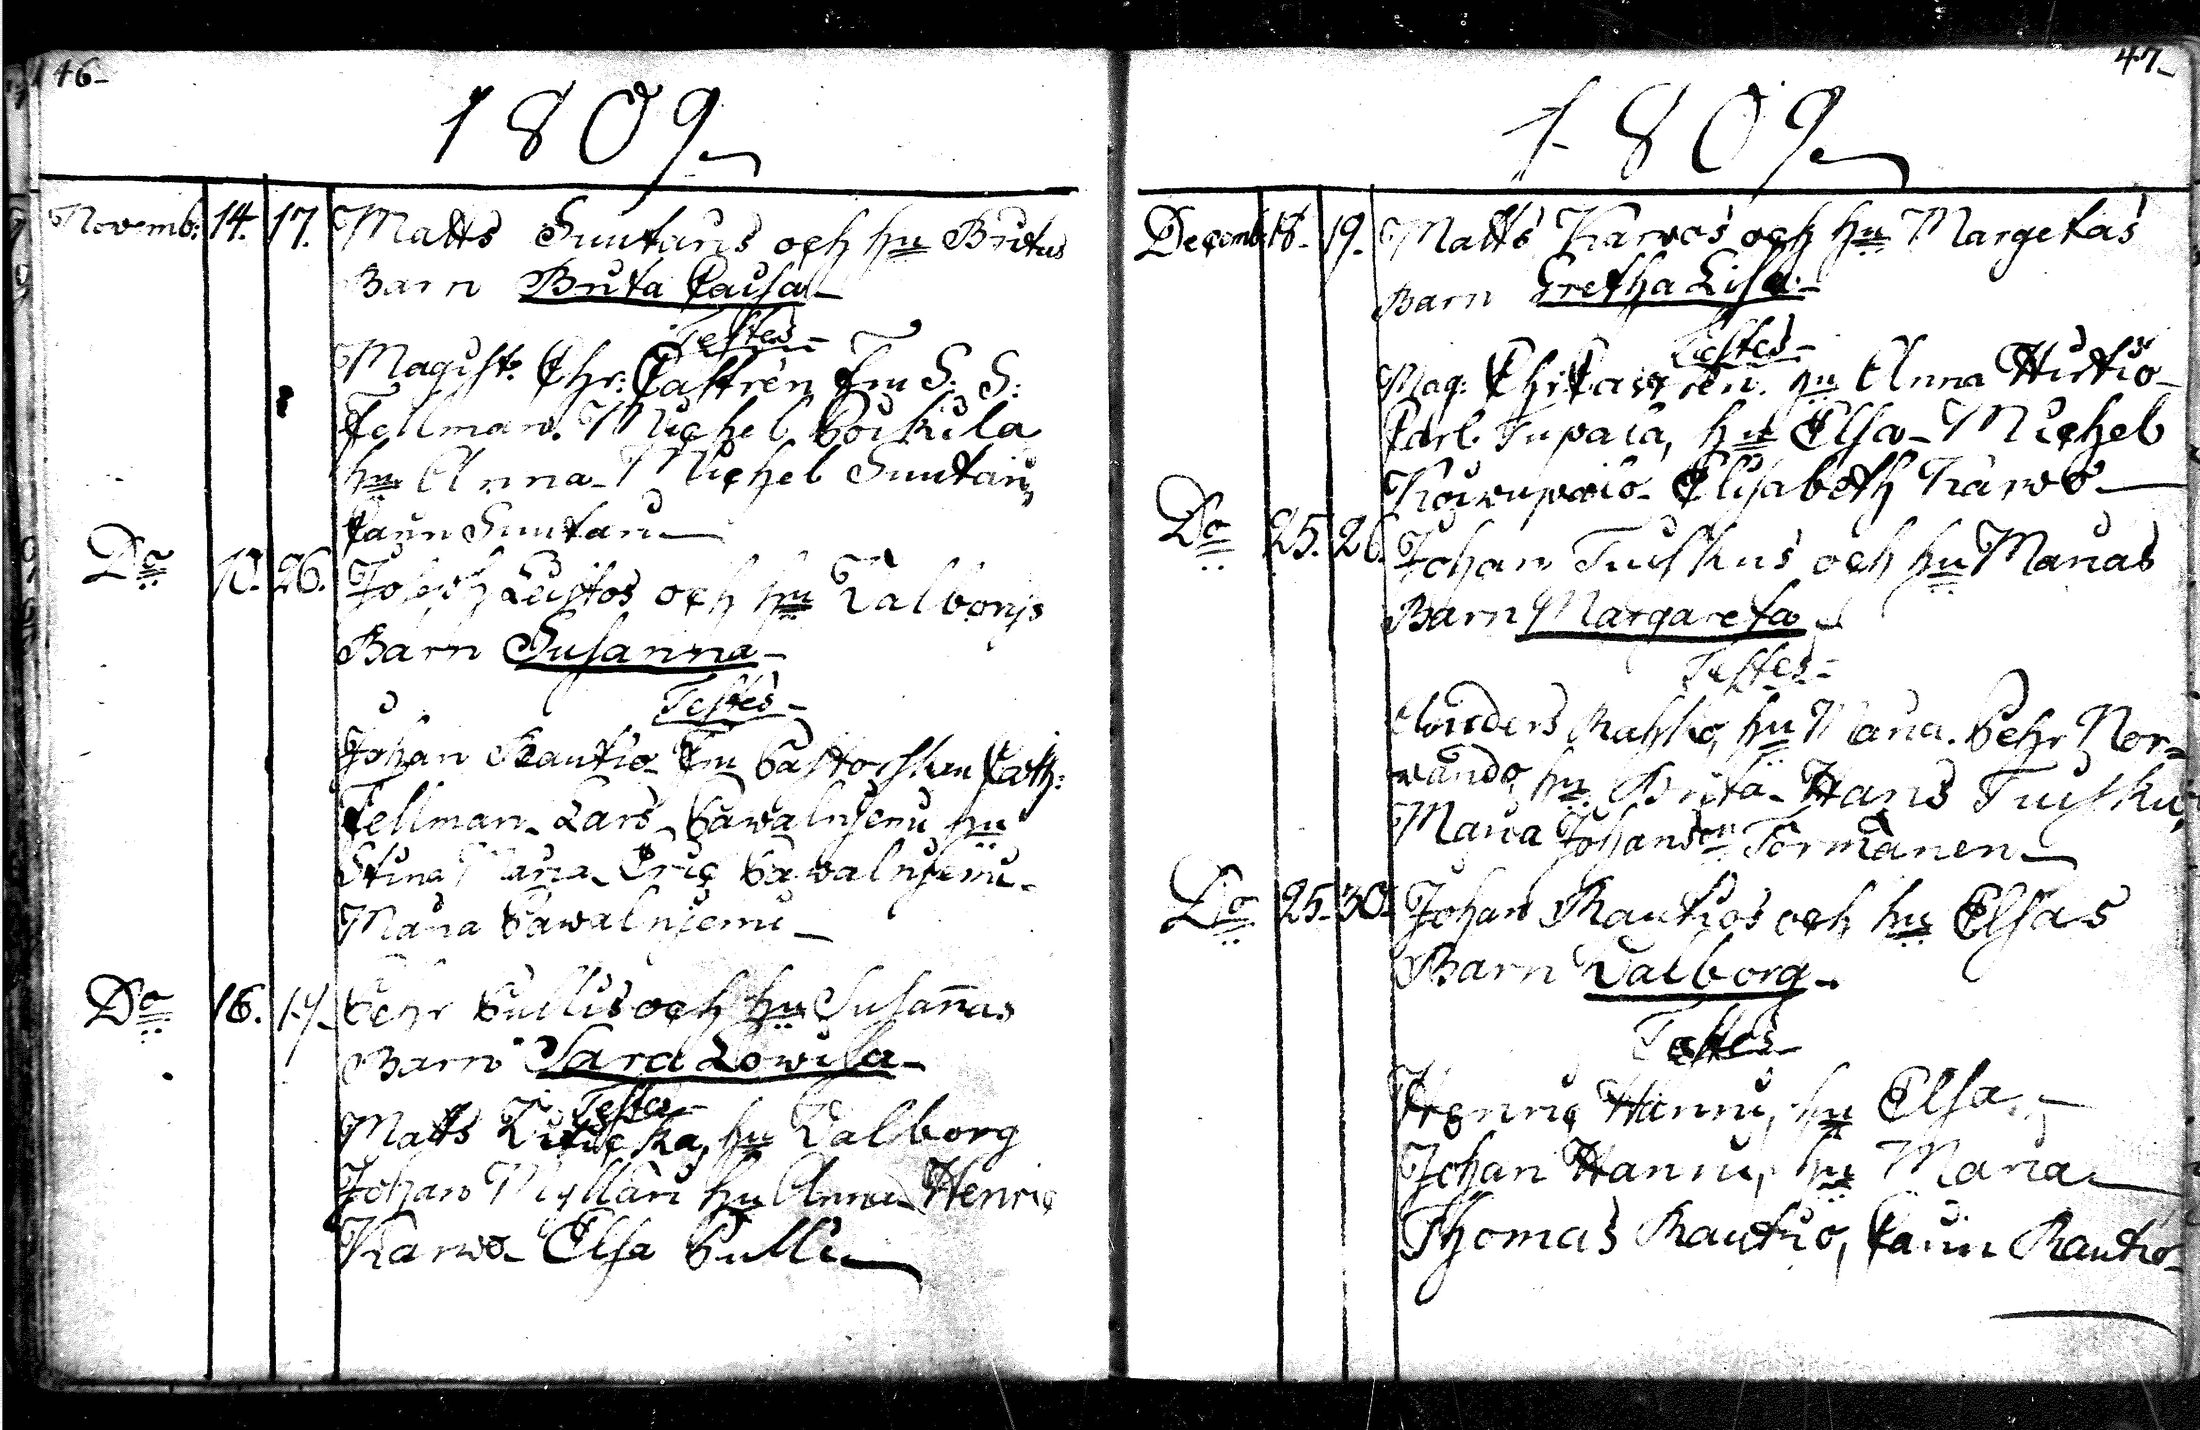 46-
1809
Novemb: 14. 17. Matts Suutaris och hu Britas
Barn Brita Caisa-
Testes-
Magist. Chr: Castrén Fru S. S:
Fellman. Michel Poikila
hu Anna- Michel Suutari,
Carin Suutari-
Do 26. Joseph Leistos och hu Valborgs
Barn Susanna-
Testes-
Johan Rautio- Fru Pastorskan Cath:
Fellman- Lars Pawalnjemi hu
Stina Maria- Eric Pawalnjemi-
Maria Pawalnjemi-
Do 16. Pehr Pullis och hu Susannas
Barn Sara Lowisa-
Testes-
Matts hu Valborg
Johan Mylläri hu Anna- Henric
Karwo- Elsa Pulli-
47-
1809
Decemb: 18- 19. Matts Karwos och hu Margetas
Barn Gretha Lisa-
Testes-
Mag: Chr: Castrén. hu Anna Hirtiö-
Carl Tupala, hu Elsa- Michel
Elisabeth Karwo-
Do 25. 26. Johan Tuiskus och hu Marias
Barn Margareta-
Testes-
Anders Rahko, hu Maria. Pehr Nor-
wando hu Brita- Hans Tuisku,
Maria Johansdr Törmänen-
Do 25- 30- Johan Rautios och hu Elsas
Barn Valborg-
Testes
Henric Hannu, hu Elsa,-
Johan Hannu, hu Maria-
Thomas Rautio, Carin Rautio-